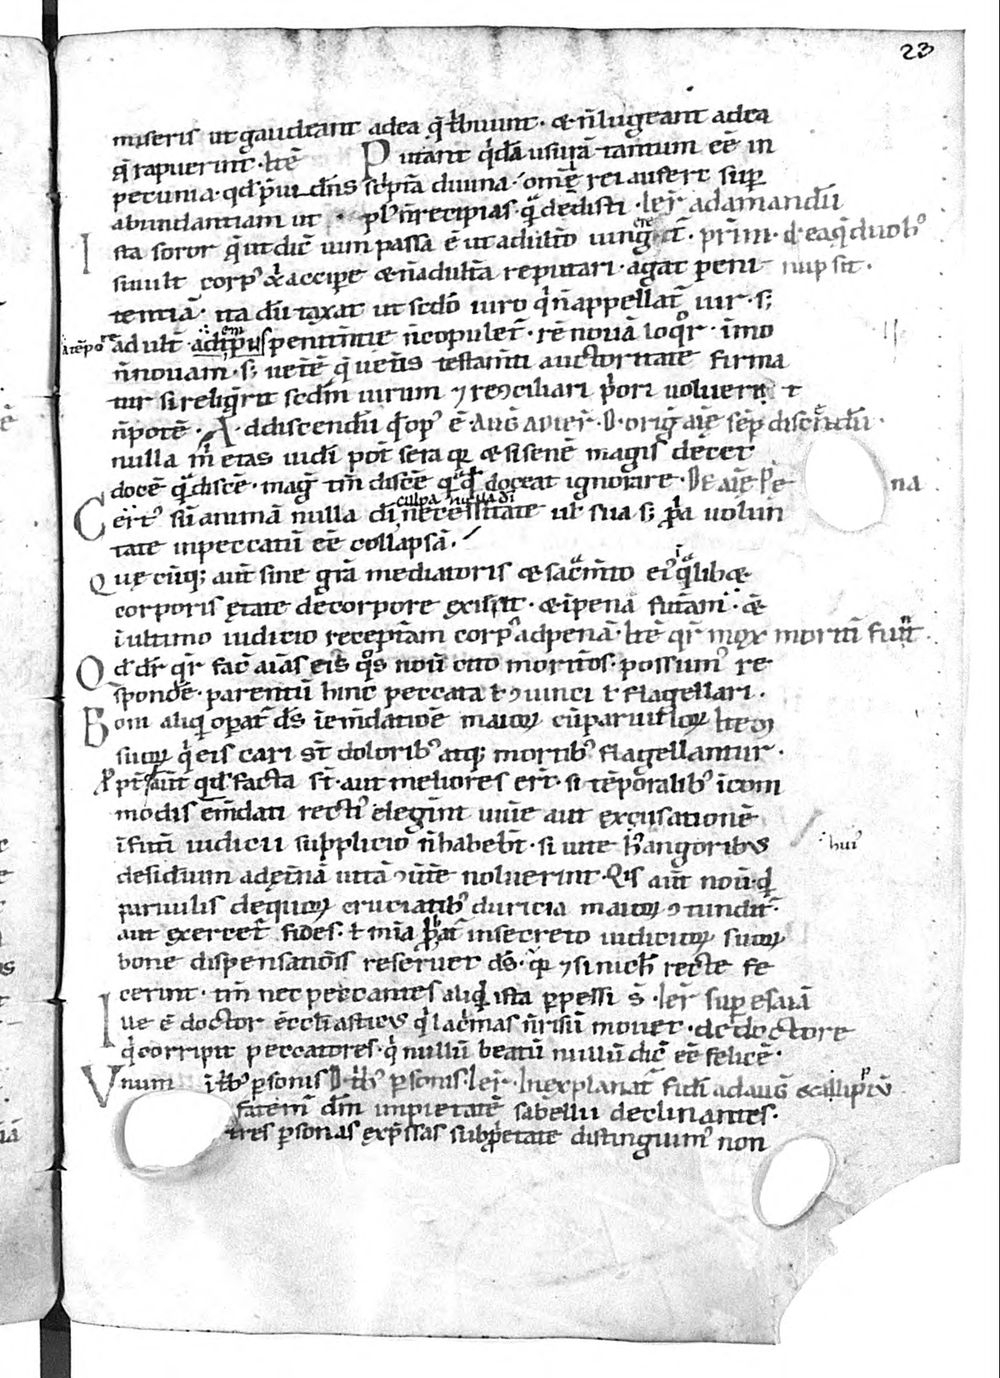 23
miseris ut gaudeant adea q̄ t̄buunt · & n̄ lugeant adea
q̄ rapuerunt · Itē Putant q̄dā usurā tantum eē in
pecunia · qd p̄uidens sc̄ptā diuina · omēꝫ rei aufert sup̄
abundantiam ut · pl̓ n̄ recipias · q̄ dedisti · Ier̄ adamandū
Ista soror q̄ ut dic̄ uim passa ē ut adultō iung̓et̄ · prim̄ · d̓ ea q̄ duob᾽
simult corp᾽ xp̄i accipe & n̄ adult̄a reputari · agat peni nupsit ·
tentiā · ita dū taxat ut sc̄do uiro q̄ n̄ appellat̄ uir · s;
adult̄ penitentie n̄ copulet̄ · rē nouā loq̄r · imo
n̄ nouam · s; uetē q̄ uet̄is testam̄ti auctoritate firma
tur si reliq̄rit sc̄dm uirum ⁊ recōciliari p̄ori uoluerit
n̄ potē · Addiscendū q̄d op᾽ ē · Aug̓ · D · orig̓ aīe sēp discēdū ·
nulla m̄ etas uidi pot̄ sera q̄ & si senē magis decet
docē q̄ discē · mag̓ tm̄ discē q̄ q̄d doceat ignorare · De aīe pe na
culpa nulla di
Cert᾽ sū animā nulla di necessitate ut sua s; p̄a uolun
tate in peccatū eē collapsā ·
Quecūq; aut̄ sine gr̄a mediatoris & sac̄mto ei᾽ q̄libꝫ
corporis ętate decorpore exisrit · & ī penā futā · &
ī ultimo iudicio receptam corp᾽ adpenā · Itē q̄r mox mortū fuūt ·
Qd̄ dr̄ q̄r fac̄ aīas eis q̄s nouit cito mortuos · possum᾽ re
sponde · parentū hinc peccata ł cōuinci ł flagellari ·
Boni aliq̄ opat̄ ds̄ ī em̄datiōē maioꝝ cū paruuloꝝ
suoꝝ q̄ eis cari st̄ dolorib᾽ atq; mortib᾽ flagellantur ·
facta st̄ · aut meliores ert̄ · si tēporalib᾽ incom
modis em̄dati recti᾽ elegint uiue aut excusationē
ī fut̄i iudicii supplicio n̄ habebt̄ · si uite h᾽ angoribus hui᾽
desiderium ad ęt̄nā uitā cōuit̄e noluerint · Qis aut̄ nouit q̄
paruulis dequoꝝ cruciatib᾽ duricia maioꝝ cōtundit̄ ·
aut exercet̄ fides · ł mīa p̄bat̄ in secreto iudicioꝝ suoꝝ
bone dispensatiōis reseruet ds̄ · q̄ ⁊ si nich̄ recte fe
cerint · tm̄ nec peccantes aliq̄d ista p̄pessi s̄ · Ier̄ sup̄ esaiā
Ille ē doctor ecclīasticus q̄ lac̄mas n̄ risū mouet · de doctore
q̄ corripit peccatores · q̄ nullū beatū nullū dic̄ eē felicē ·
Vnum ī trib᾽ p̄sonis D · trib᾽ p̄sonis · Ier̄ · In explanat̄ fidī ad aug̓ & calipiū
fatem᾽ dm̄ impietatē sabellii declinantes ·
tres p̄sonas exp̄ssas sub p̄etate distinguim᾽ non